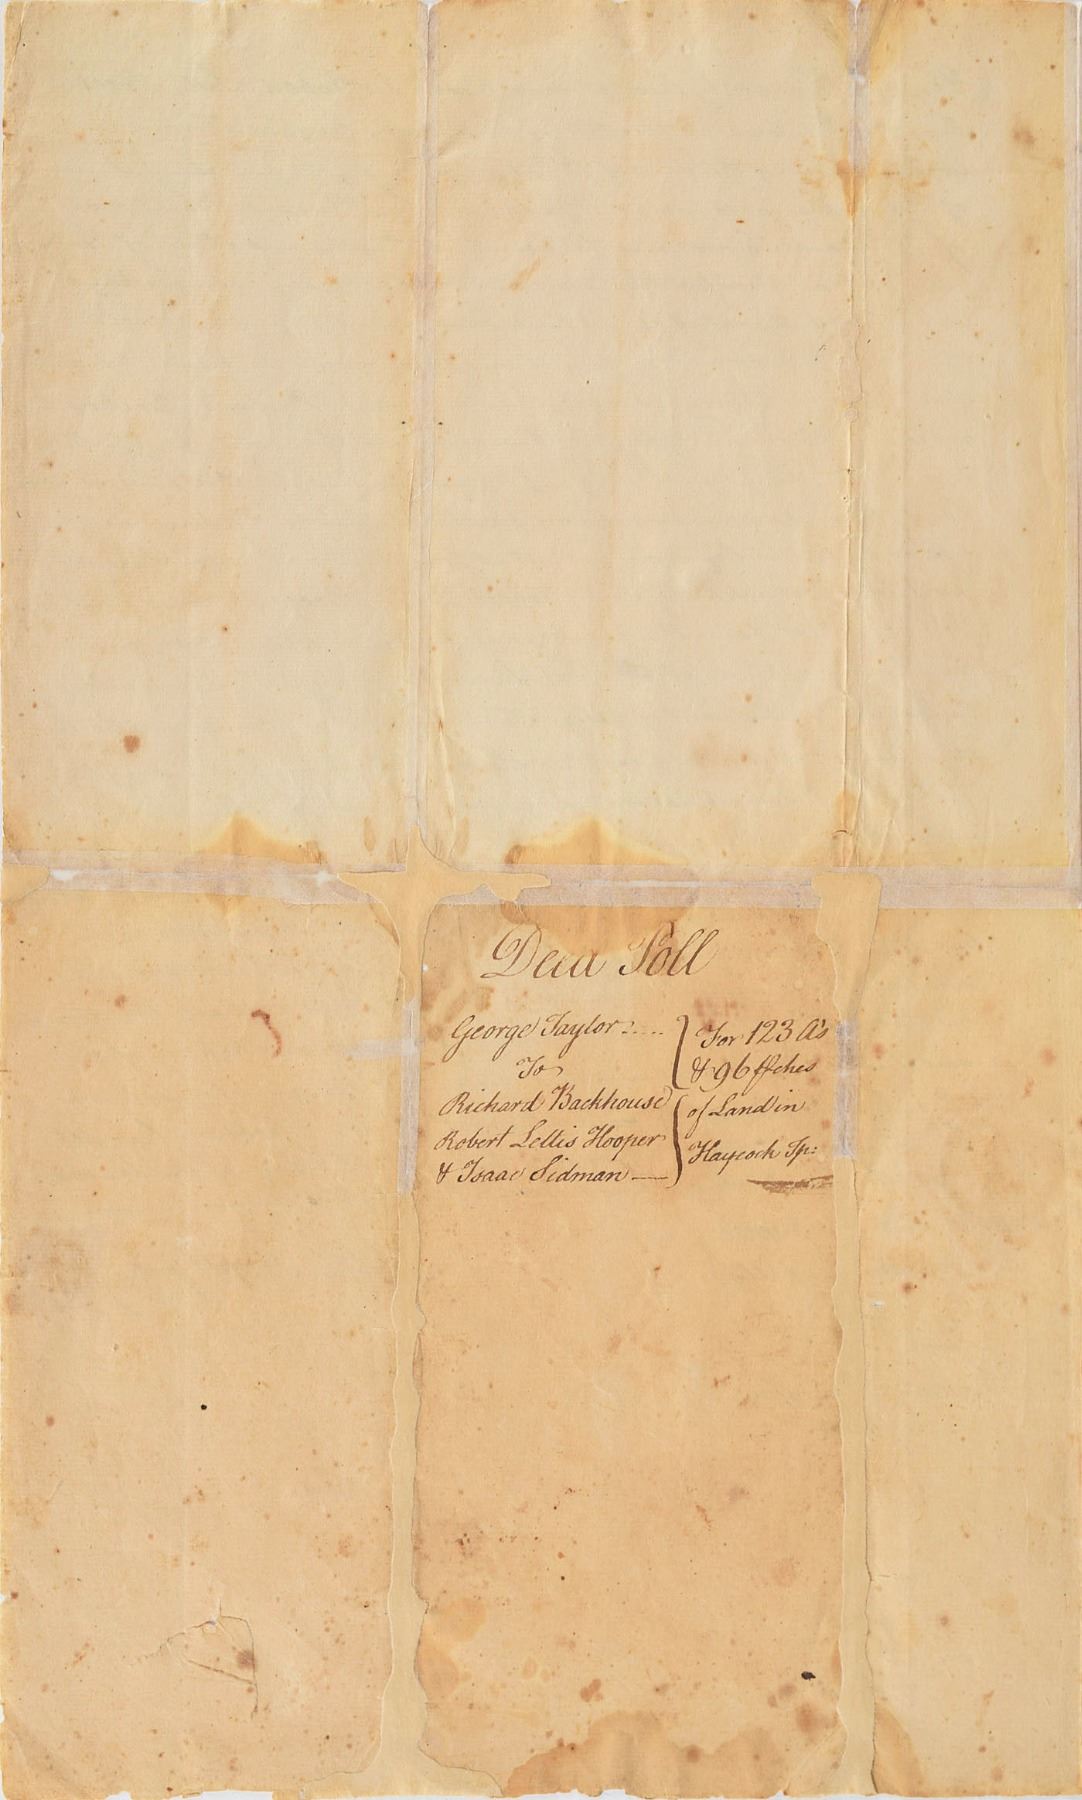 Deed Poll
George Taylor
To
Richard Backhouse
Robert Lettis Hooper
& Isaac Sidman
For 123 A's
& 96 pches
of Land in
Haycock Tp: